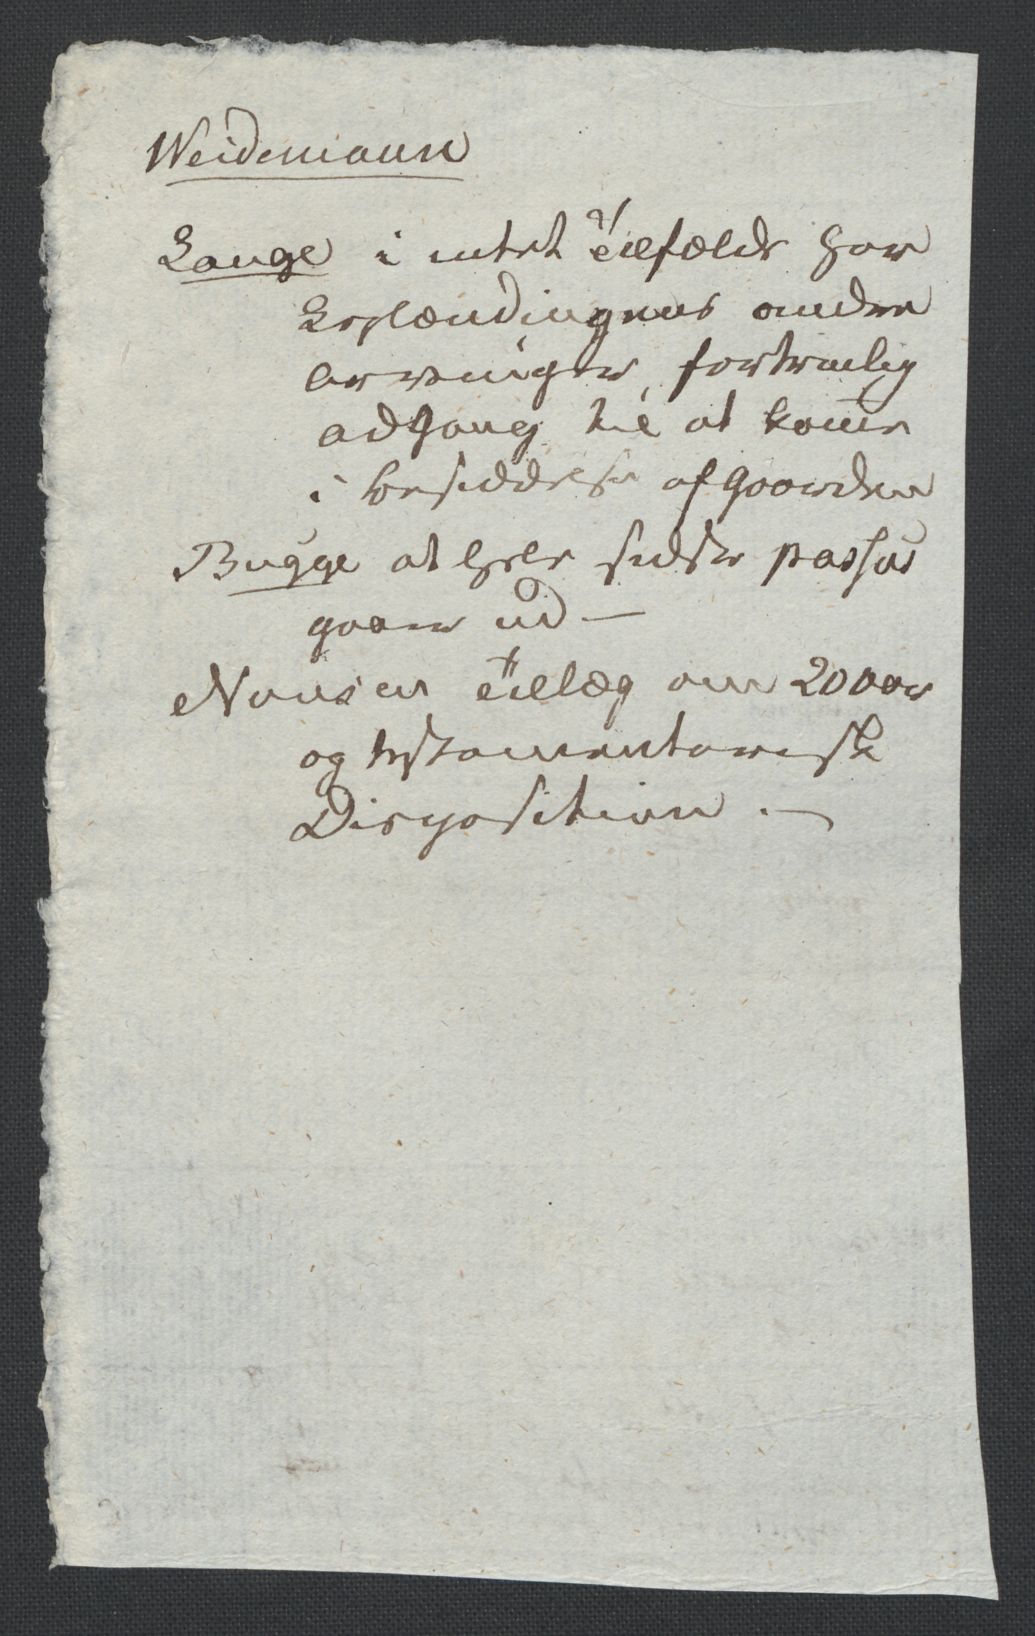 Weidemann
Lange i intet tilfælde har
Leylændingens andre
arvinger fortrinlig
adgang til at kome
i besiddelse af Gaarden
Bugge at hele sidste passus
gaaer ud —
Nansen tillæg om 20 aar
og testamentarisk
Disposition . —